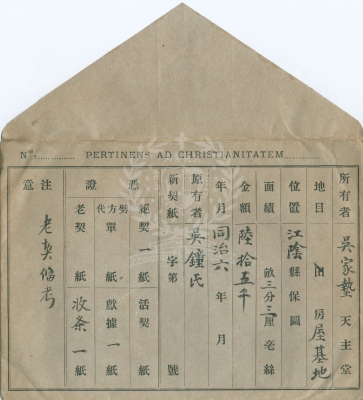 No. PERTINENS AD CHRISTIANITATEM
所有者 吳家墊 天主堂
地目 房屋基地
位置 江陰縣保圖
面積 畝三分三厘毫絲
金額 陸拾五千
年月 同治六年月
原有者 吳鐘氏
新契紙 字第 號
憑證
絕契 一紙 活契 紙
方單 代勞 紙 獻據 一紙
老契 紙 收条 一紙
注意
老契俻考